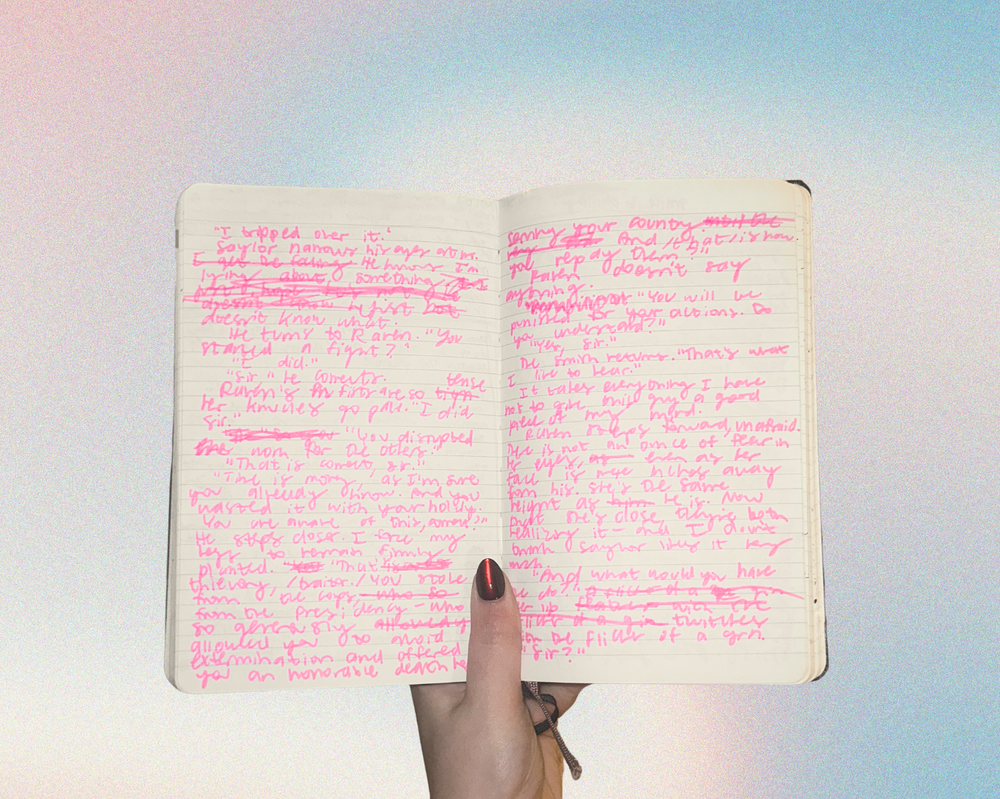 "I tripped over it."
Saylor narrows his eyes at me.
I get the feeling He knows I'm
lying about something
he just
doesn't know what.
He turns to Raven. "You
started a fight?"
"I did."
"Sir." He corrects. tense
Raven's fists are so
her knuckles go pale. "I did
sir."
"You disrupted
nom for the others."
"That is correct, sir."
"Time is money, as I'm sure
you already know. And you
wasted it with your
You are aware of this,
He steps closer. I force my
legs to remain firmly
planted. "That's
thievery, /traitor./ You stole
from the cops who so
from the presidency - who
so generously
allowed you to avoid
extermination and offered
you an honorable death
serving your country
And /that/ is how
you repay them?"
Raven doesn't say
anything.
"You will be
punished for your actions. Do
you understand?"
"Yes, sir."
The smith returns. "That's what
I like to hear."
It takes everything I have
not to give this guy a good
piece of my mind.
Raven steps forward, unafraid.
There is not an ounce of fear in
her eyes, as even as her
face is mere inches away
from his. She's the same
height as him he is. Now
that she's close, they're both
realizing it and I don't
think Saylor likes it very
much.
"And what would you have
me do?
lip
twitches
with the flick of a grin.
"Sir?"